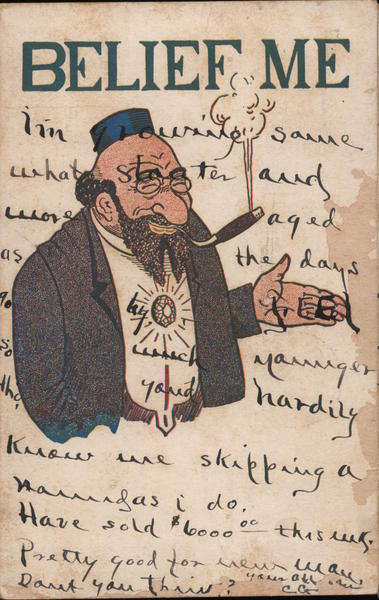 BELIEF ME
I'm growing some
what stouter and
more aged
as the days
go by, I FEEL
so much younger
tho, you'd hardily
Know me skipping a
as i do.
Have sold $6000.00 this wk.
Pretty good for new man.
Dont you think? yours
C.G.